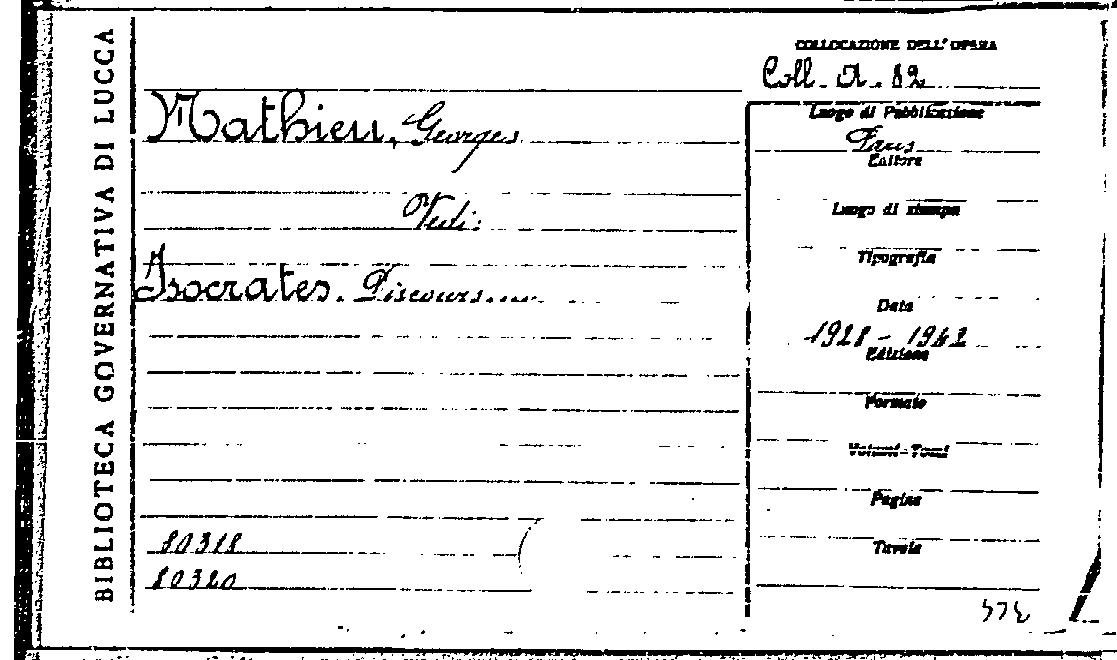 BIBLIOTECA GOVERNATIVA DI LUCCA
COLLOCAZIONE DELL'OPERA
Coll. A. 82
Mathieu, Georges
Vedi:
Isocrates. Discours....
Luogo di Pubblicazione
Paris
Editore
Luogo di stampa
Tipografia
Data
1928 - 1942
Edizione
Formato
Volumi-Tomi
Pagine
Tavole
80318
80320